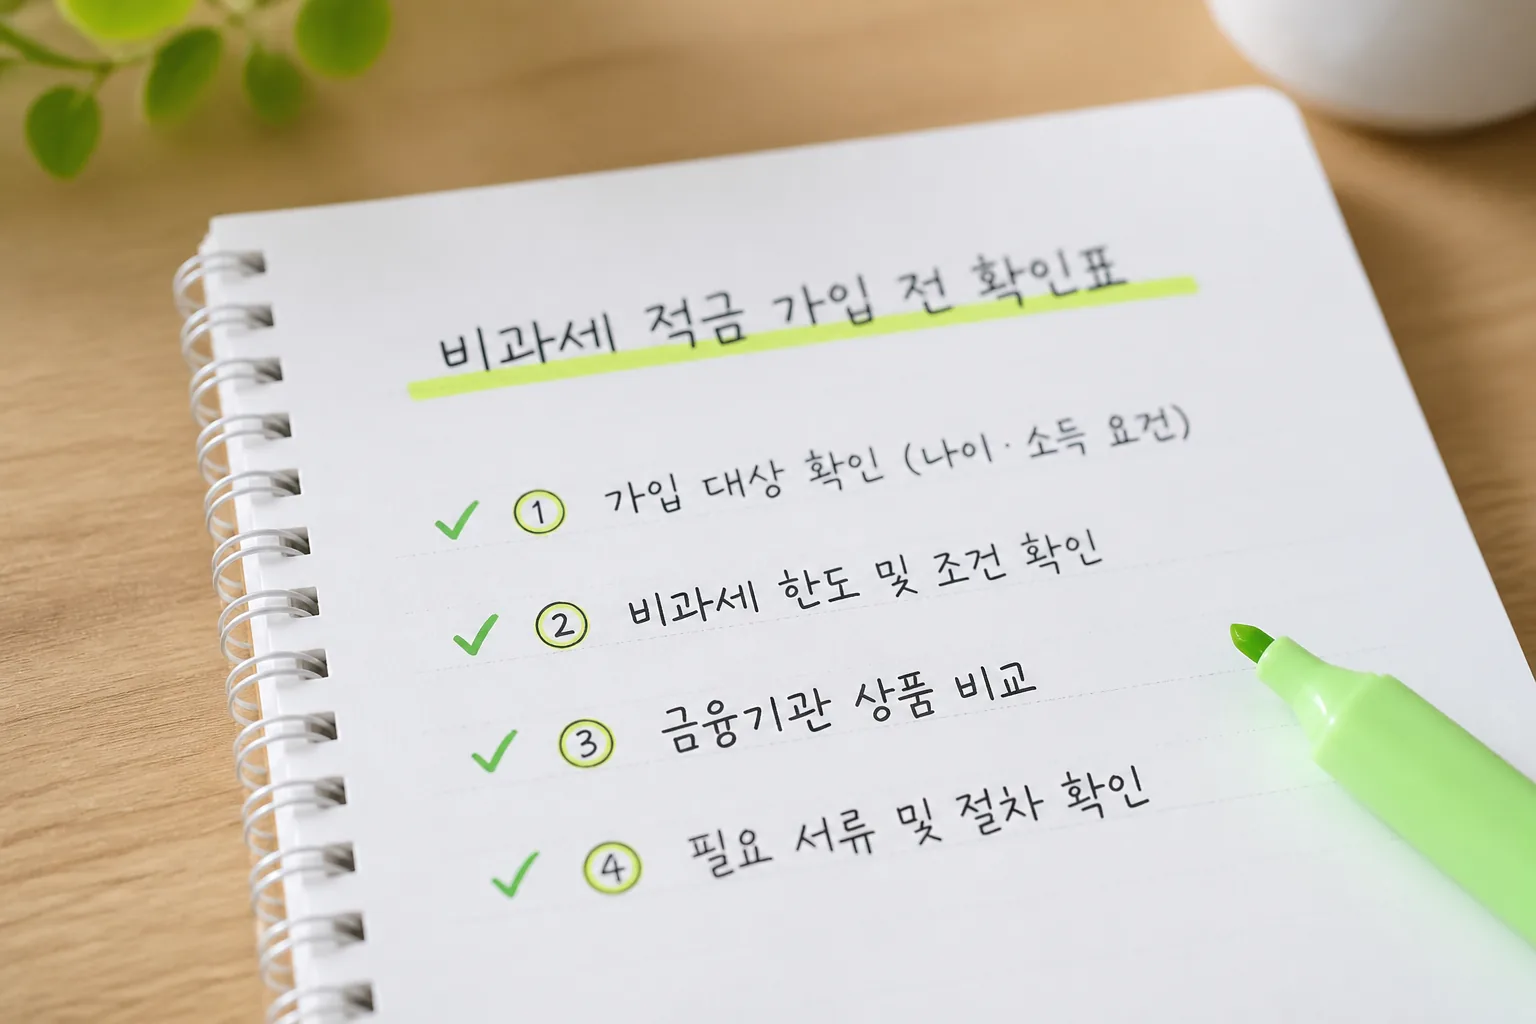 비과세 적금 가입 전 확인표
✓ ① 가입 대상 확인 (나이·소득 요건)
✓ ② 비과세 한도 및 조건 확인
✓ ③ 금융기관 상품 비교
✓ ④ 필요 서류 및 절차 확인